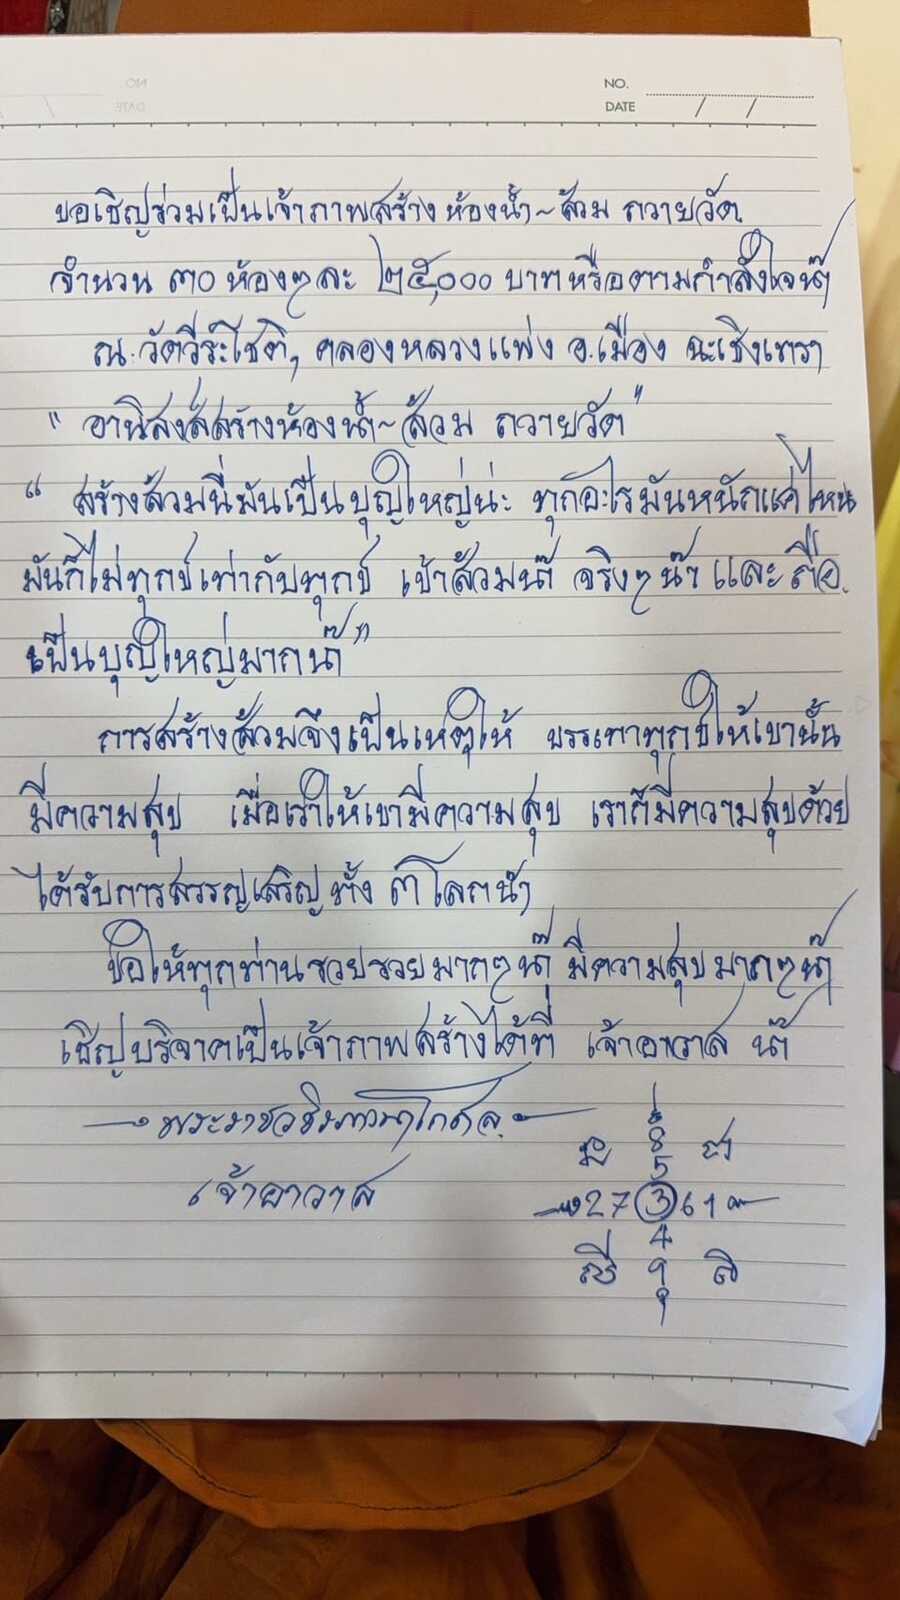 NO.
DATE / /
ขอเชิญร่วมเป็นเจ้าภาพสร้าง ห้องน้ำ~ส้วม ถวายวัด
จำนวน ๓๐ ห้องๆละ ๒๕,๐๐๐ บาทหรือตามกำลังใจน๊ำ
ณ.วัดวีระโชติฯ คลองหลวงแพ่ง อ.เมือง ฉะเชิงเทรา
"อานิสงส์สร้างห้องน้ำ~ส้วม ถวายวัด"
"สร้างส้วมนี่มันเป็นบุญใหญ่น่ะ ทุกอะไรมันหนักแค่ไหน
มันก็ไม่ทุกข์เท่ากับทุกข์ เข้าส้วมน๊ำ จริงๆน๊ำ และถือ
เป็นบุญใหญ่มากน๊ำ"
การสร้างส้วมจึงเป็นเหตุให้ บรรเทาทุกข์ให้เขานั้น
มีความสุข เมื่อเราให้เขามีความสุข เราก็มีความสุขด้วย
ได้รับการสรรญเสริญทั้ง ๓ โลกน๊ำ
ขอให้ทุกท่านรวยรวยมากๆน๊ำ มีความสุขมากๆน๊ำ
เชิญบริจาคเป็นเจ้าภาพสร้างได้ที่ เจ้าอาวาส น๊ำ
เจ้าอาวาส
8
5
27 3 61
4